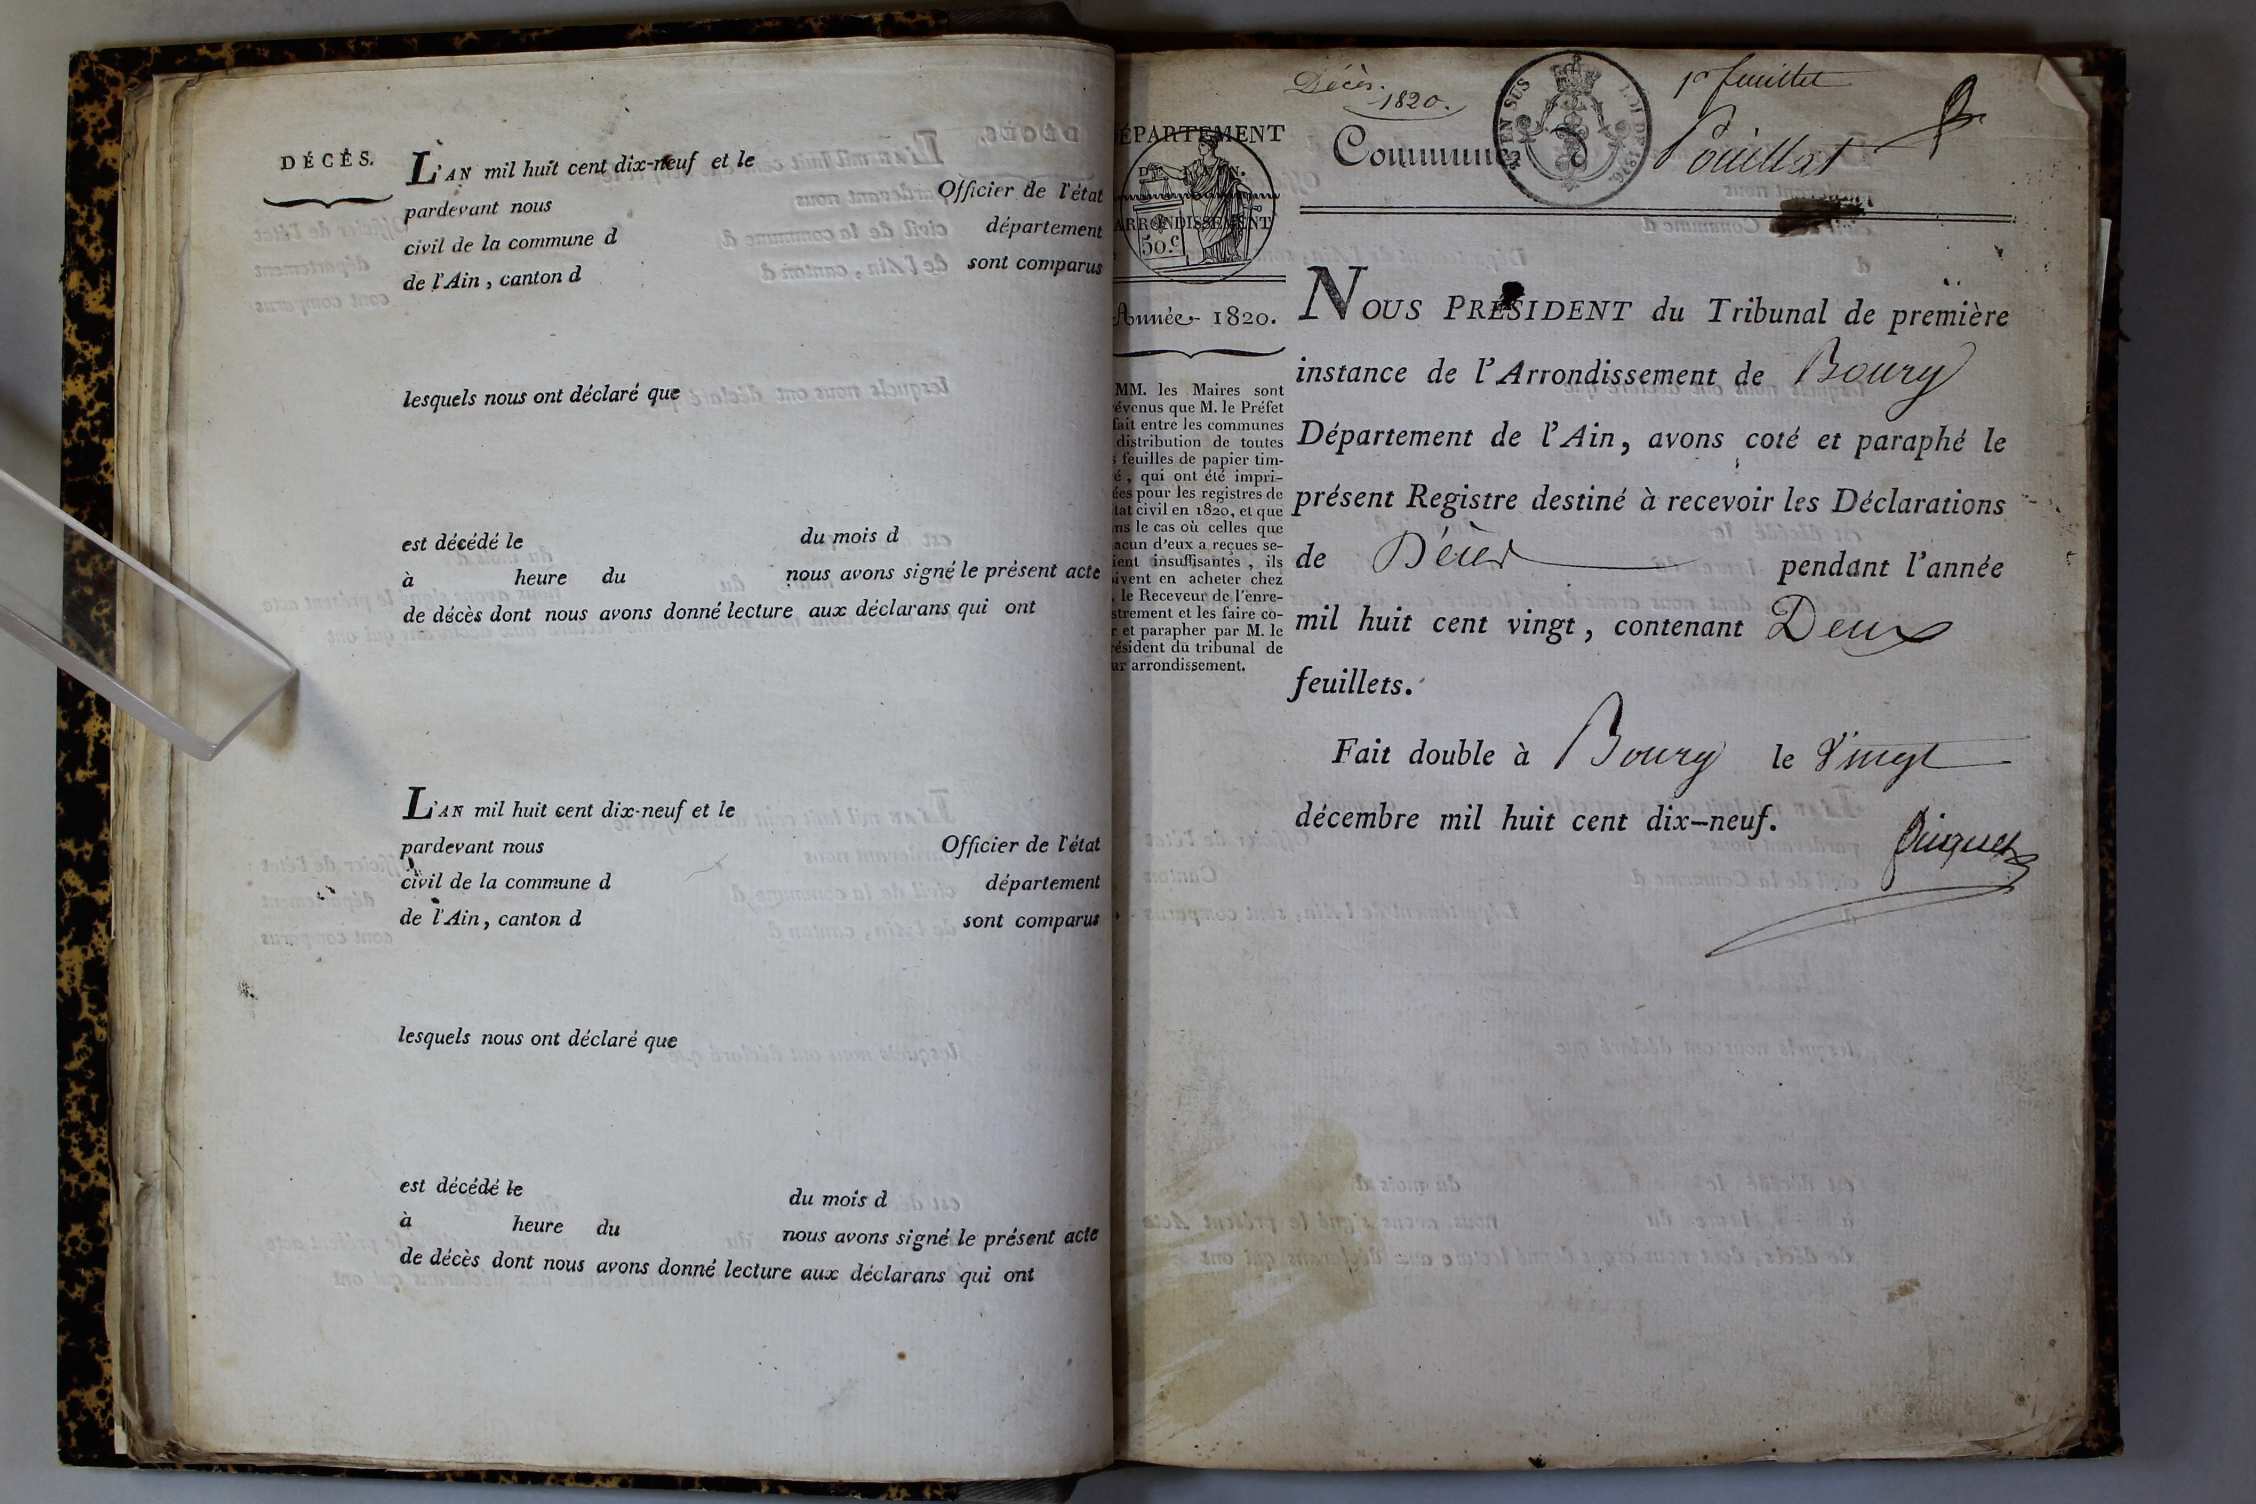 DÉCÈS.
L'AN mil huit cent dix-neuf et le
pardevant nous Officier de l'état
civil de la commune d département
de l'Ain, canton d sont comparus
lesquels nous ont déclaré que
est décédé le du mois d
à heure du nous avons signé le présent acte
de décès dont nous avons donné lecture aux déclarans qui ont
L'AN mil huit cent dix-neuf et le
pardevant nous Officier de l'état
civil de la commune d département
de l'Ain, canton d sont comparus
lesquels nous ont déclaré que
est décédé le du mois d
à heure du nous avons signé le présent acte
de décès dont nous avons donné lecture aux déclarans qui ont
Décès.
1820.
1er feuillet
EN SUS
ÉPARTEMENT
DE L'AIN.
ARRONDISSEMENT
50.c
Commune d Pouillat
Année 1820.
MM. les Maires sont
évenus que M. le Préfet
fait entre les communes
distribution de toutes
s feuilles de papier tim-
é, qui ont été impri-
ées pour les registres de
tat civil en 1820, et que
ns le cas où celles que
acun d'eux a reçues se-
ient insuffisantes, ils
ivent en acheter chez
. le Receveur de l'enre-
strement et les faire co-
r et parapher par M. le
ésident du tribunal de
ur arrondissement.
NOUS PRÉSIDENT du Tribunal de première
instance de l'Arrondissement de Bourg
Département de l'Ain, avons coté et paraphé le
présent Registre destiné à recevoir les Déclarations
de Décès pendant l'année
mil huit cent vingt, contenant Deux
feuillets.
Fait double à Bourg le Vingt
décembre mil huit cent dix-neuf.